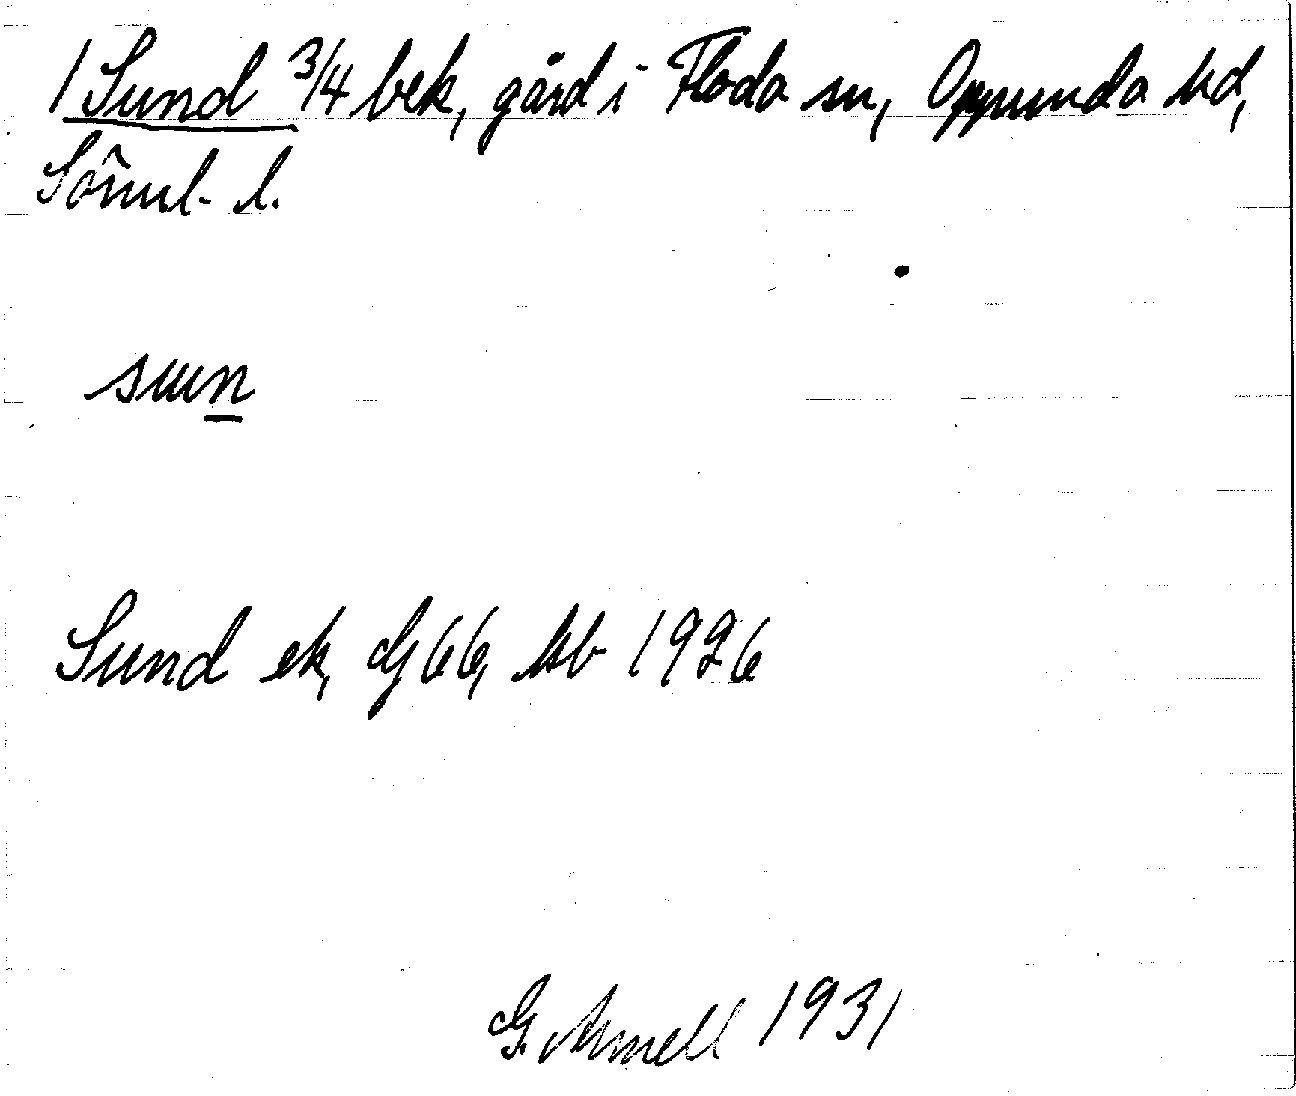 1 Sund 3/4 bek, gård i Floda sn, Oppunda hd,
Söml. l.
sun
Sund ek, G 66, Jdb 1926
G. Armell 1931